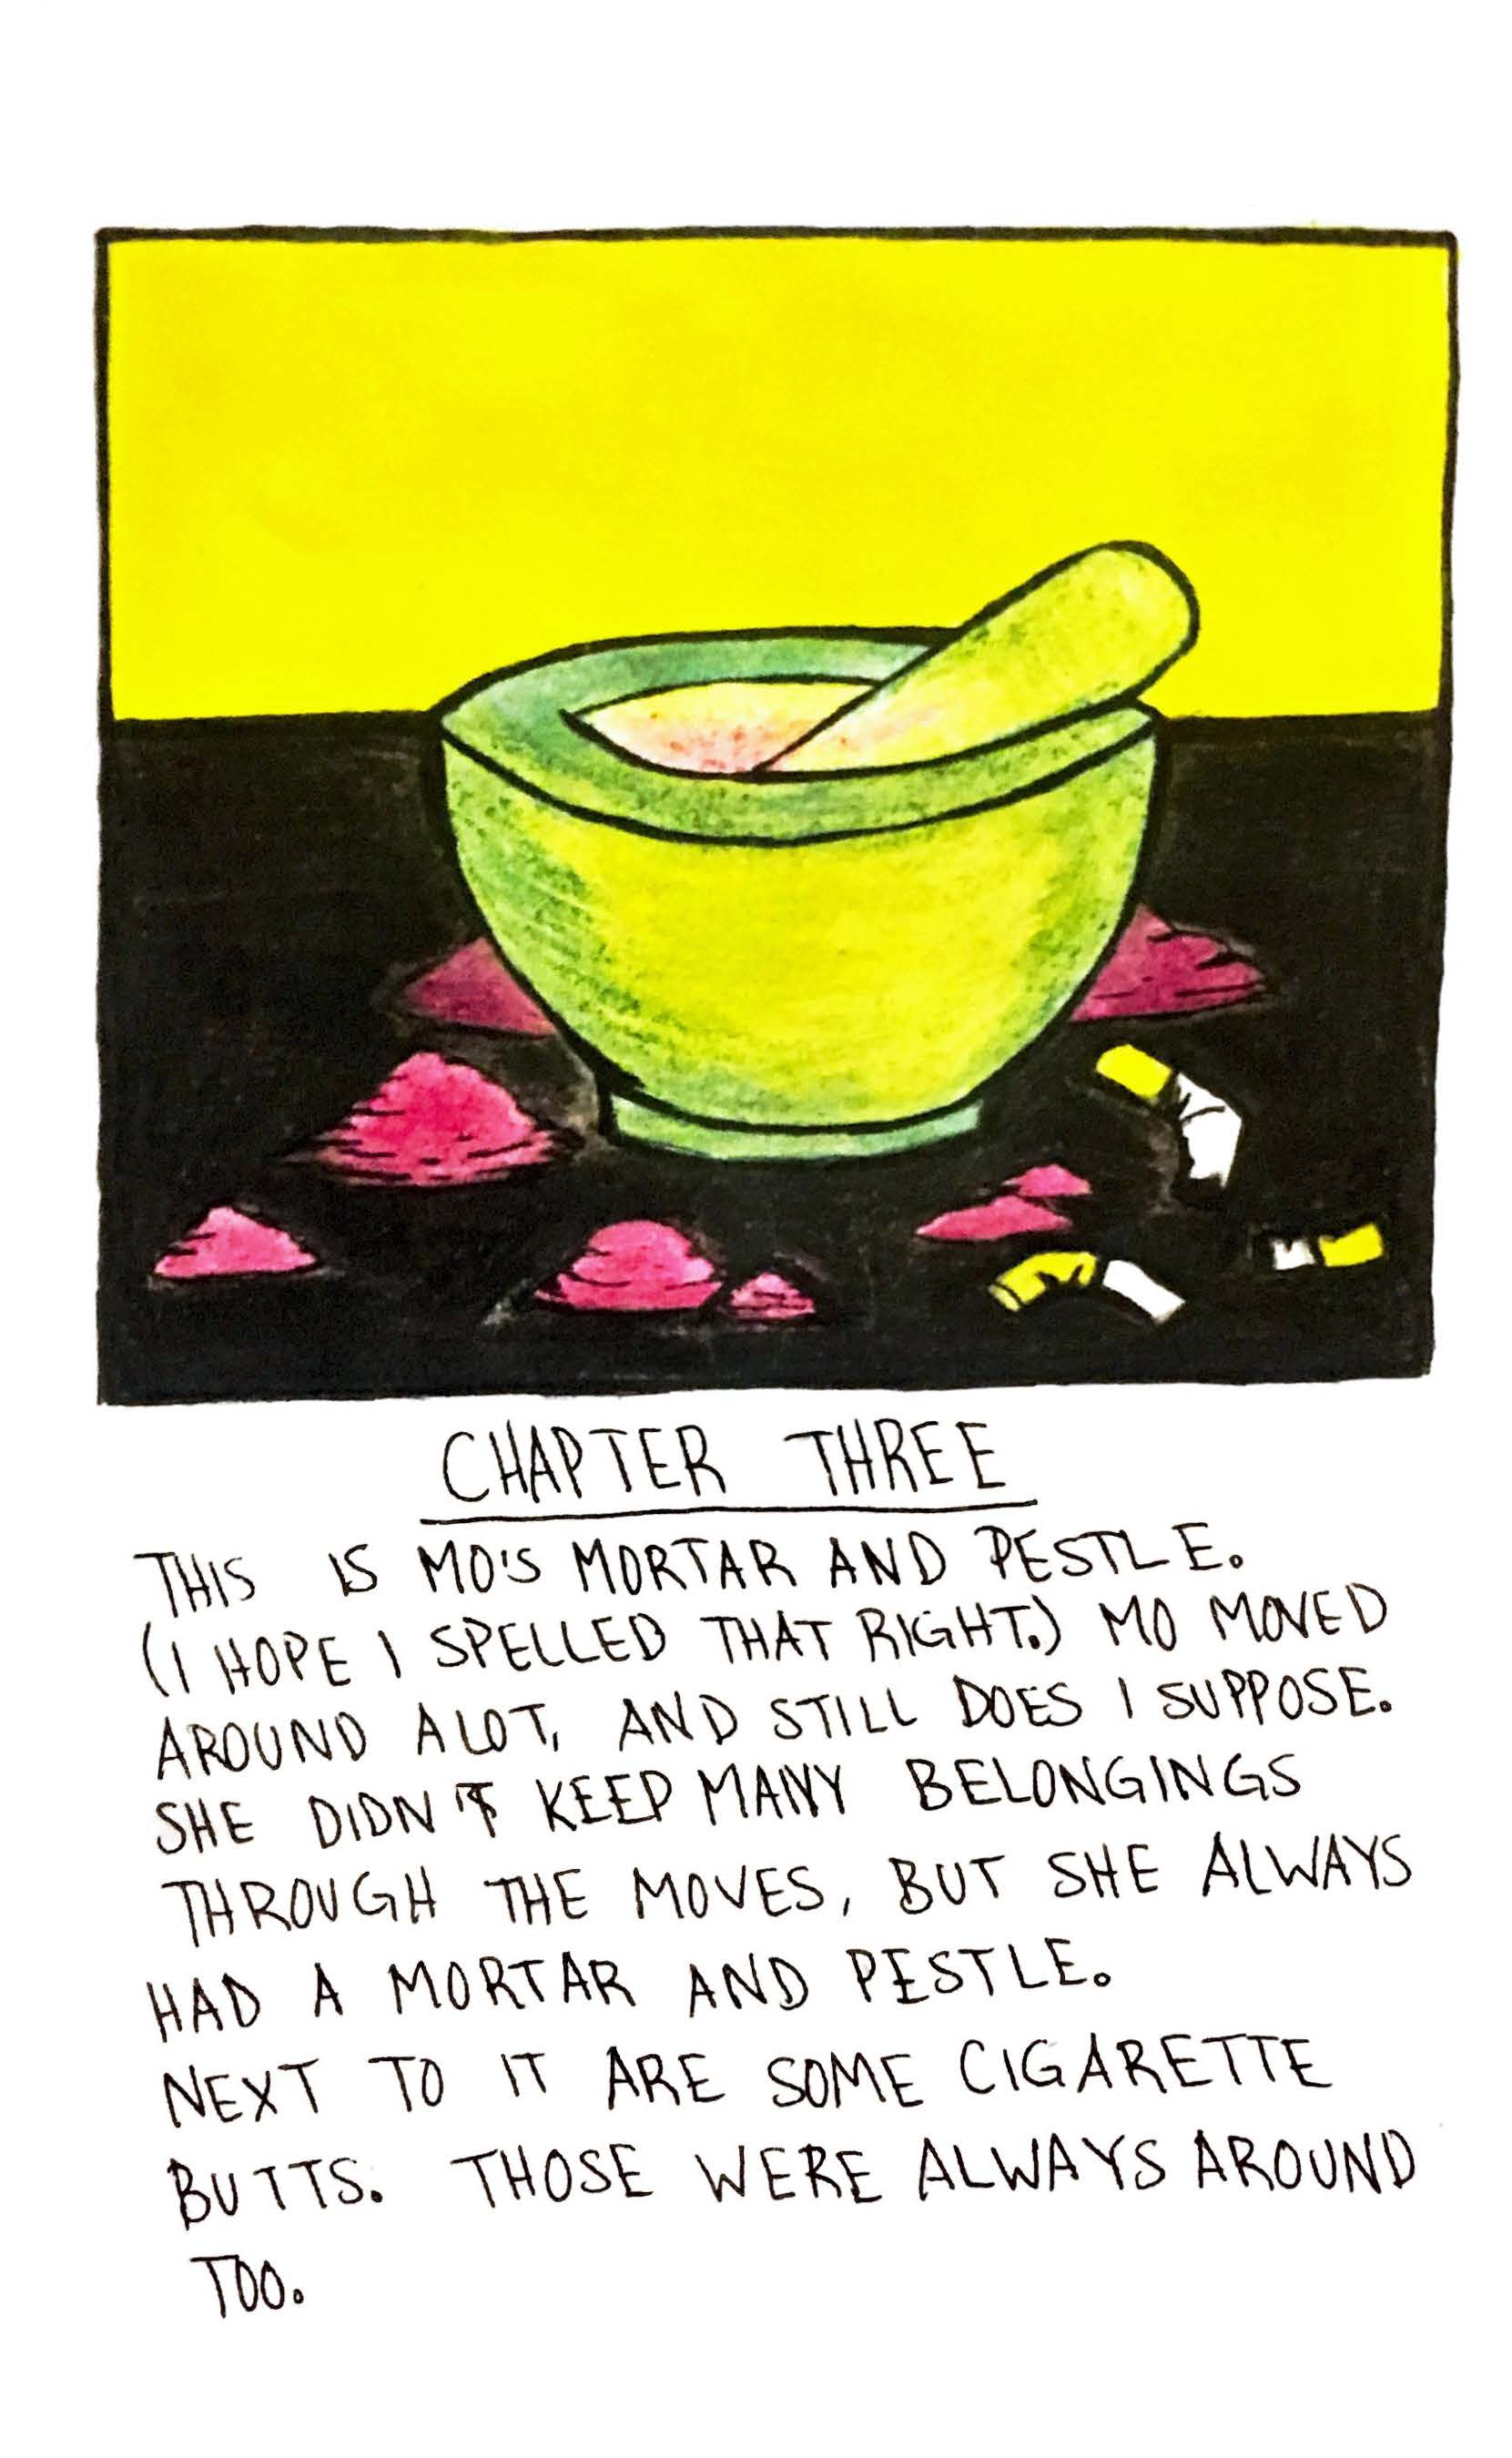 CHAPTER THREE
THIS IS MO'S MORTAR AND PESTLE.
(I HOPE I SPELLED THAT RIGHT.) MO MOVED
AROUND A LOT, AND STILL DOES I SUPPOSE.
SHE DIDN'T KEEP MANY BELONGINGS
THROUGH THE MOVES, BUT SHE ALWAYS
HAD A MORTAR AND PESTLE.
NEXT TO IT ARE SOME CIGARETTE
BUTTS. THOSE WERE ALWAYS AROUND
TOO.